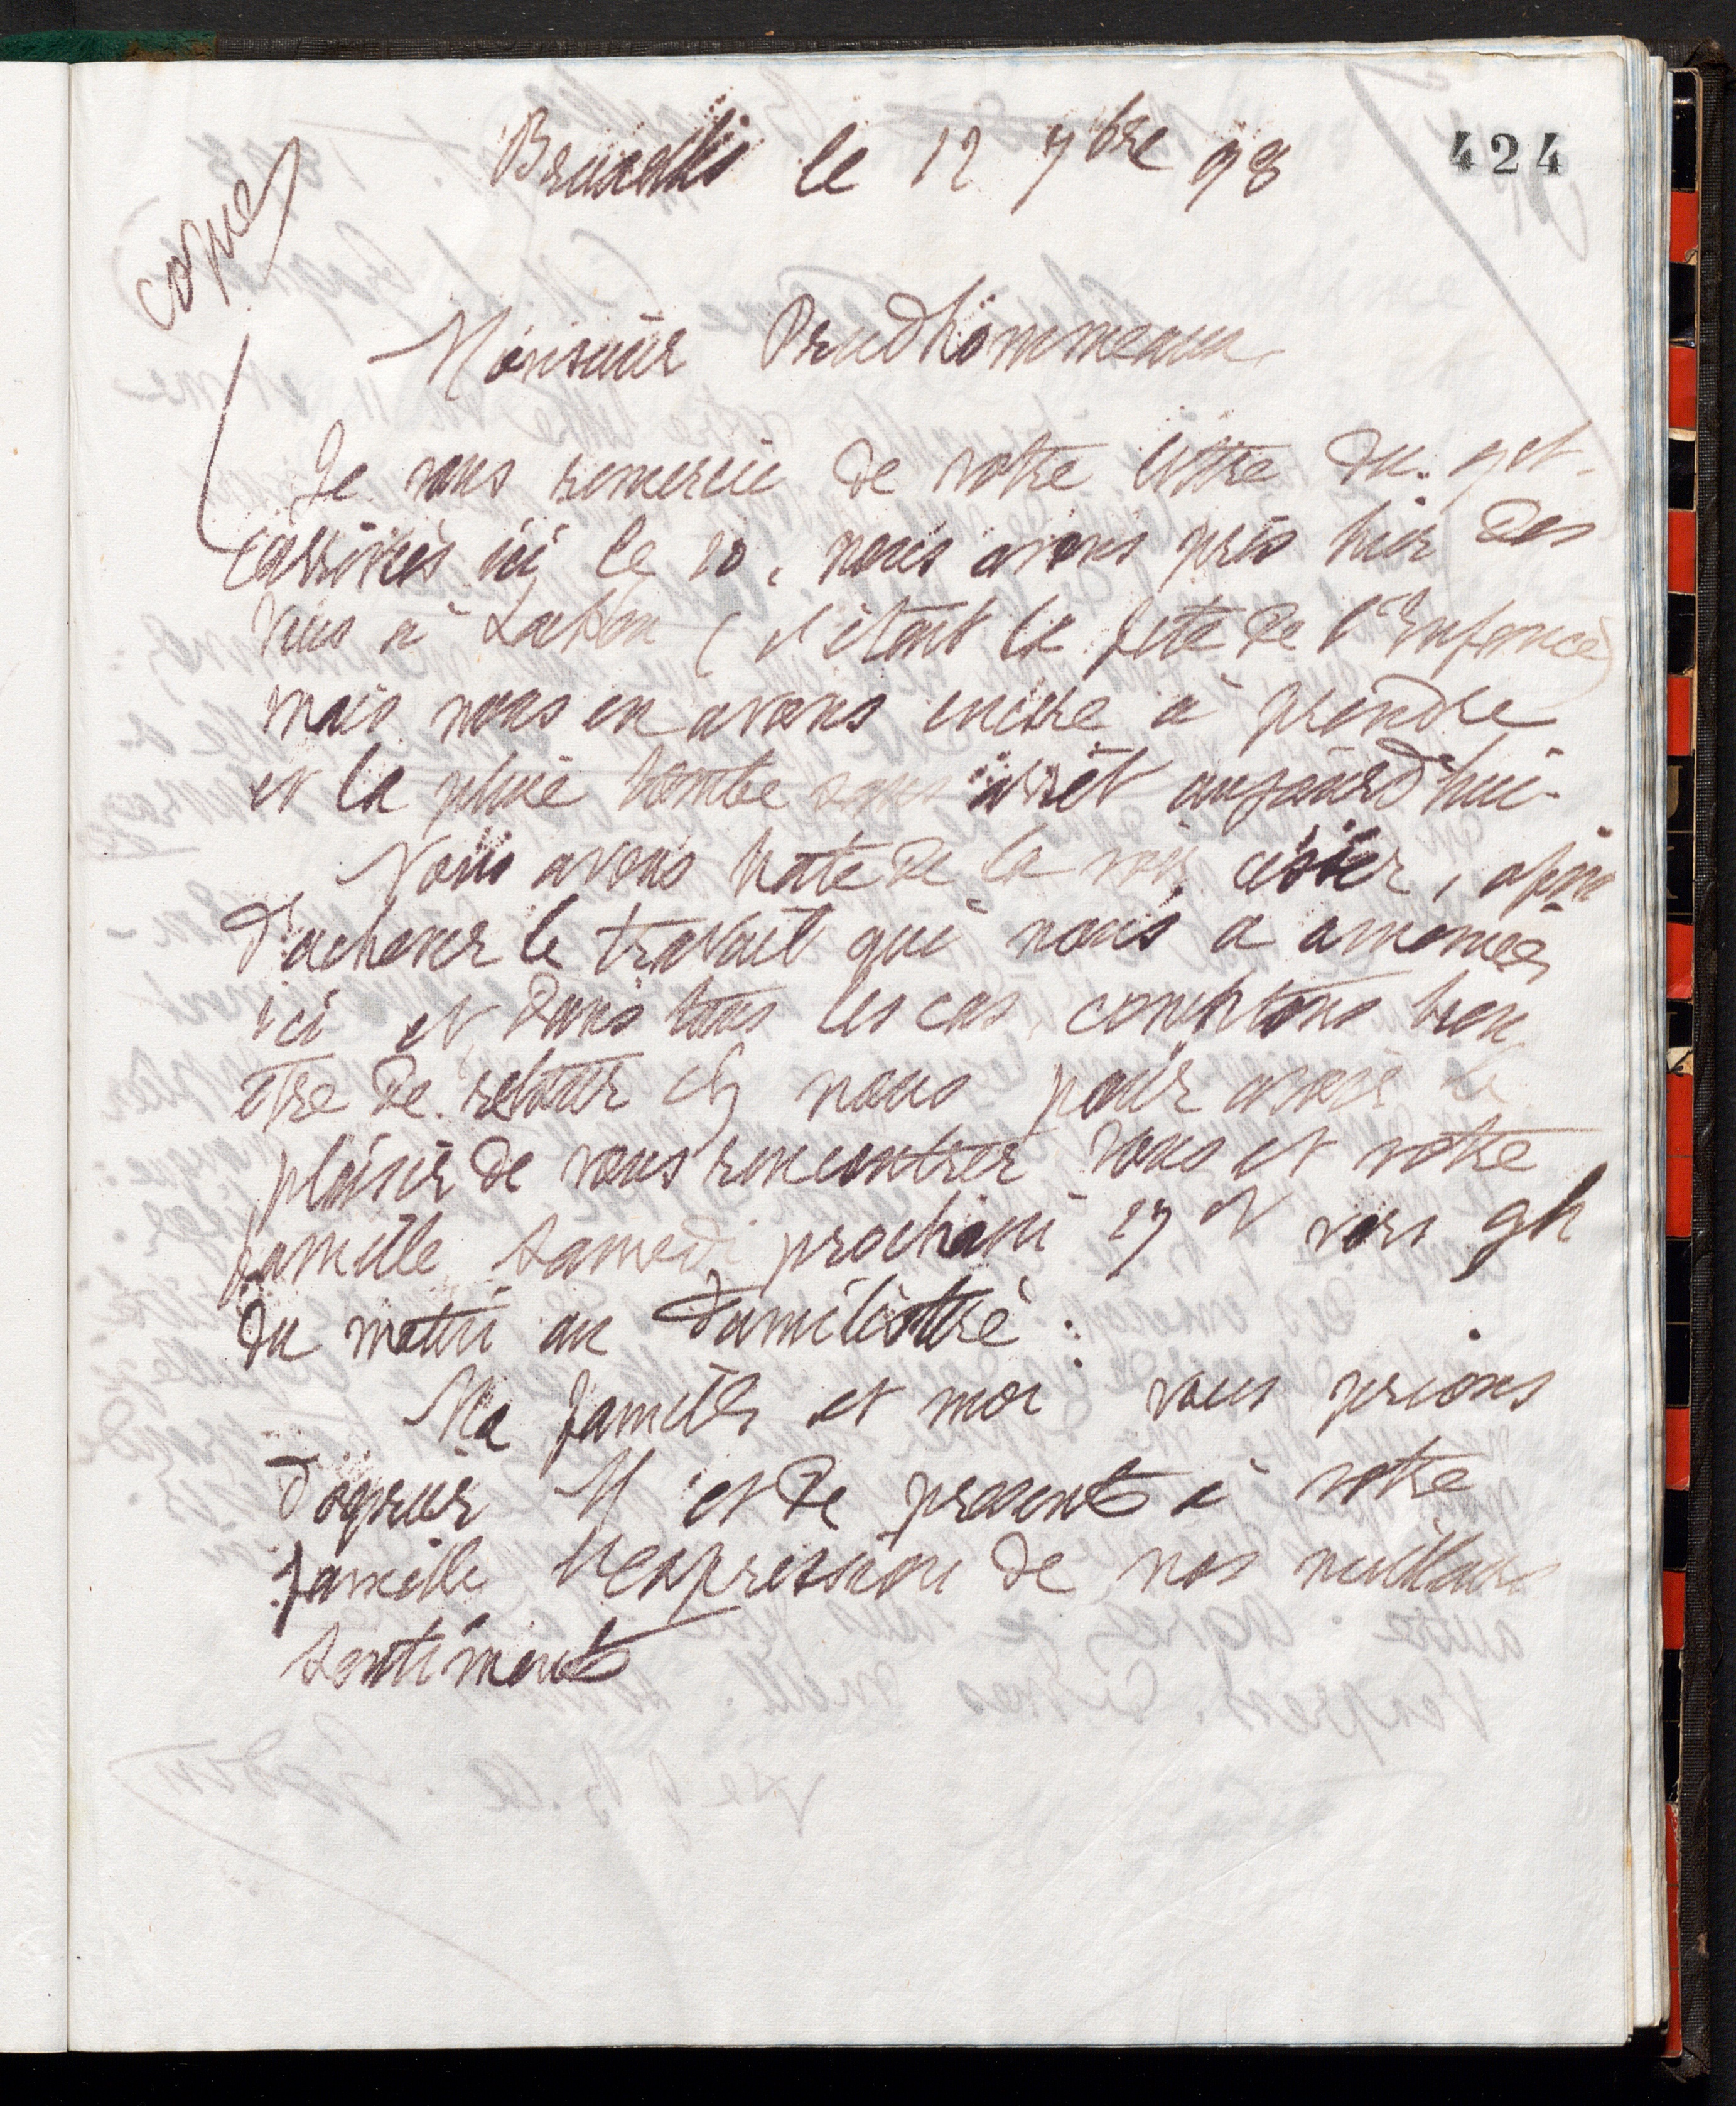 424
Bruxelles le 12 7bre 98
copie
Monsieur Prudhommeaux
Je vous remercie de votre lettre du 9 ct.
arrivés ici le 10, nous avons pris hier des
vues à Laeken (c'était la fête de l'Enfance)
mais nous en avons encore à prendre
et la pluie tombe sans arrêt aujourd'hui.
Nous avons hate de la voir cesser, afin
d'achever le travail qui nous a amenés
ici et, dans tous les cas, comptons bien
être de retour ch nous pour avoir le
plaisir de vous rencontrer vous et votre
famille samedi prochain 17 ct vers 9h
du matin au Familistère.
Ma famille et moi vous prions
d'agréer M et de présent à votre
famille l'expression de nos meilleurs
sentiments